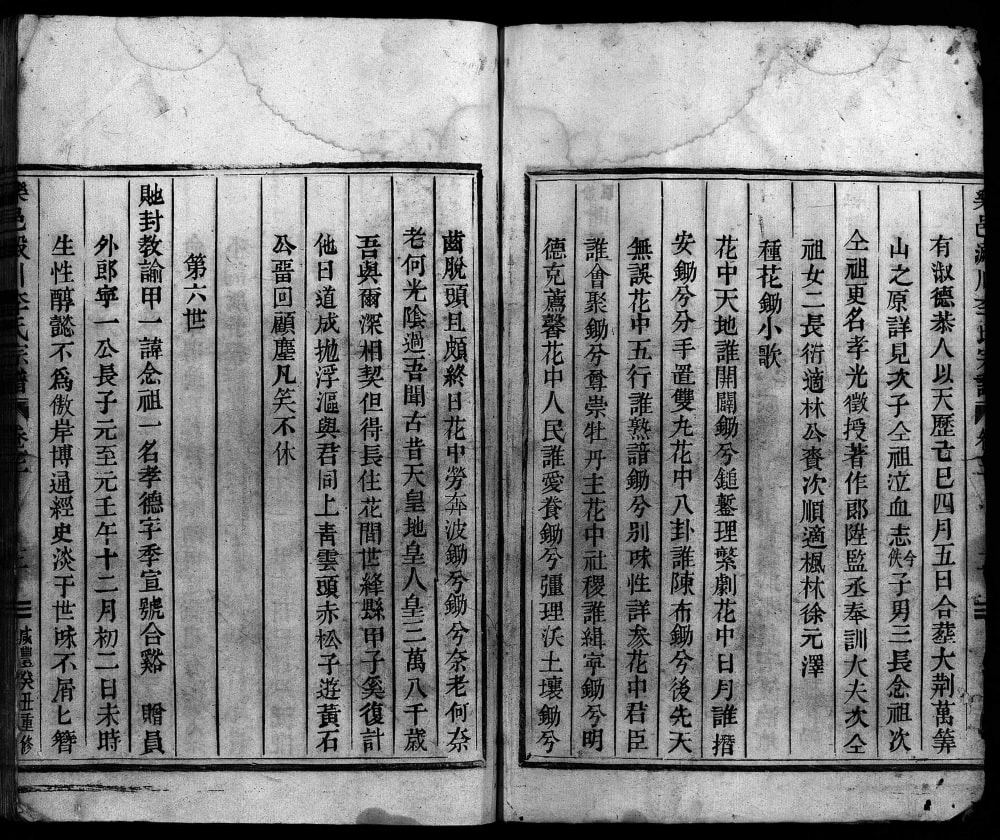 有淑德恭人以天歷己巳四月五日合葬大荆萬筭
山之原詳見次子仝祖泣血志今佚子男三長念祖次
仝祖更名孝光徵授著作郎陞監丞奉訓大夫次仝
祖女二長衍適林公賚次順適楓林徐元澤
種花鋤小歌
花中天地誰開闢鋤兮鎚鏨理繁劇花中日月誰摺
安鋤兮分手置雙丸花中八卦誰陳布鋤兮後先天
無誤花中五行誰熟諳鋤兮别味性詳叅花中君臣
誰會聚鋤兮尊崇牡丹主花中社稷誰緝寧鋤兮明
德克薦馨花中人民誰愛養鋤兮彊理沃土壤鋤兮
齒脫頭且頗終日花中勞奔波鋤兮鋤兮奈老何奈
老何光陰過吾聞古昔天皇地皇人皇三萬八千歲
吾與爾深相契但得長住花間世絳縣甲子奚復計
他日道成抛浮漚與君同上青雲頭赤松子遊黃石
公畱回顧塵凡笑不休
第六世
貤封教諭甲一諱念祖一名孝德字季宣號合谿 贈員
外郎寧一公長子元至元壬午十二月初二日未時
生性醇懿不爲傲岸博通經史淡于世味不屑匕簪
川李氏宗譜
咸豐癸丑重修